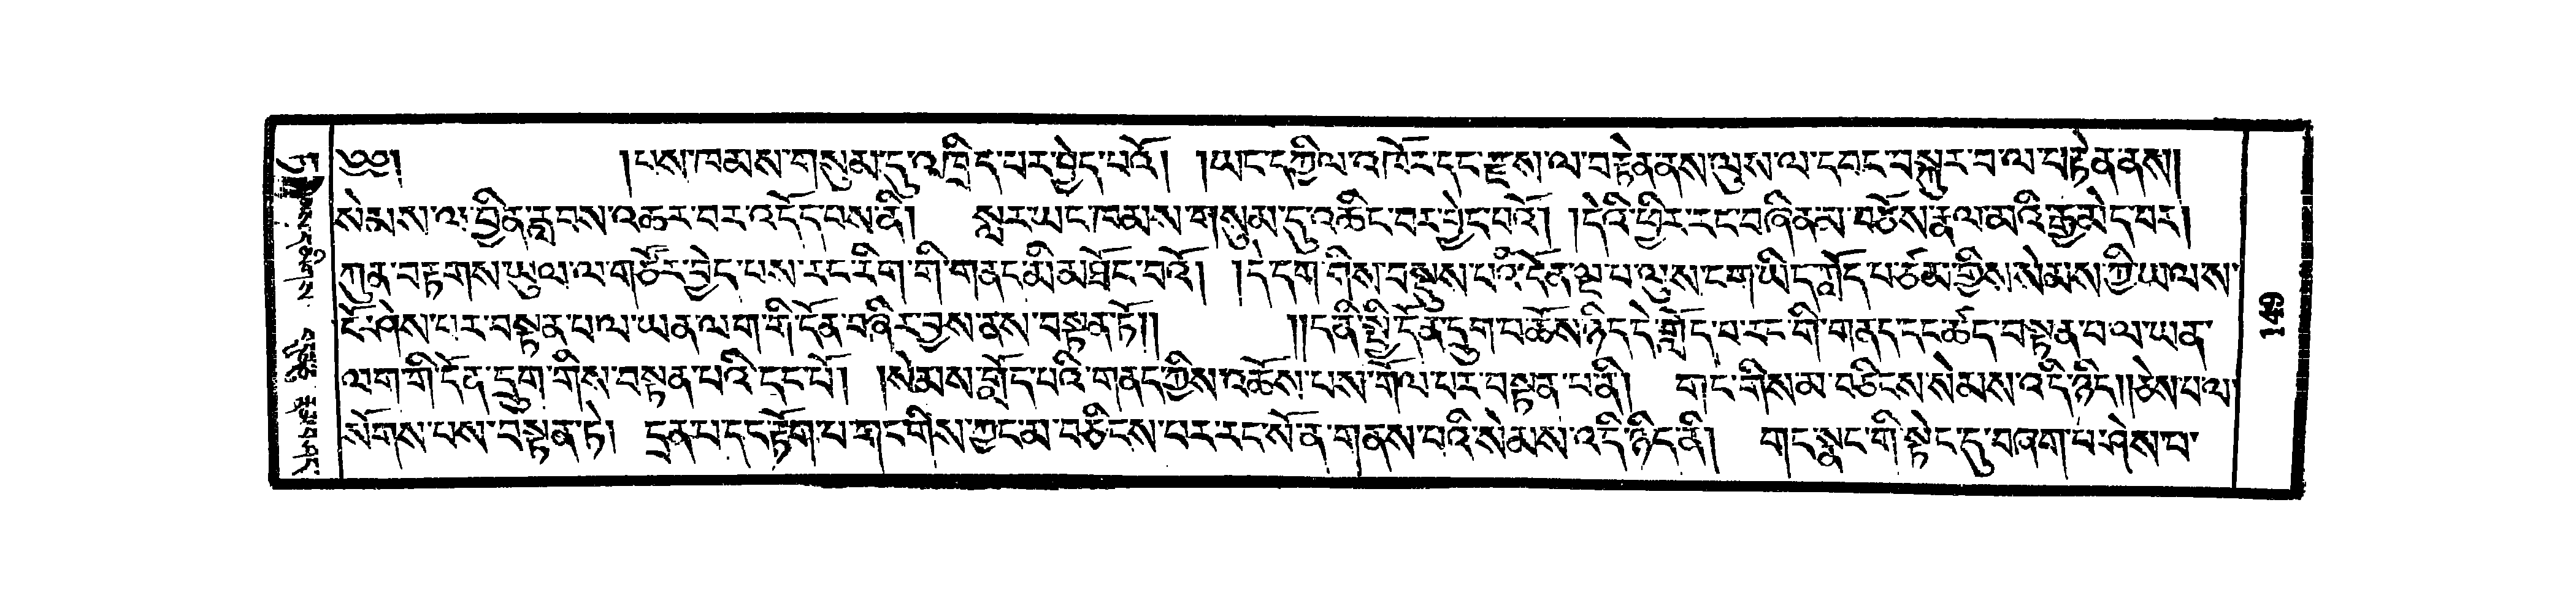 ༄༅། །པས་ཁམས་གསུམ་དུ་འཁྲིད་པར་བྱེད་པའོ། །ཡང་དཀྱིལ་འཁོར་དང་རྫས་ལ་བརྟེན་ནས་ལུས་ལ་དབང་བསྐུར་བ་ལ་བརྟེན་ནས།
སེམས་ལ་བྱིན་རླབས་འཆར་བར་འདོད་པས་ནི། སླར་ཡང་ཁམས་གསུམ་དུ་འཆིང་བར་བྱེད་པའོ། །དེའི་ཕྱིར་རང་བཞིན་མ་བཅོས་རྣལ་མའི་རྒྱ་མེད་པར།
ཀུན་བརྟགས་ཡུལ་ལ་གཙོ་བོར་བྱེད་པས་རང་རིག་གི་གནད་མི་མཐོང་བའོ། །དེ་དག་གིས་བསྡུས་པའི་དོན་ལྔ་པ་ལུས་ངག་ཡིད་གློད་པ་ཙམ་གྱིས་སེམས་ཀྱི་ཡལས་
ངོ་ཤེས་པར་བསྟན་པ་ལ་ཡན་ལག་གི་དོན་བཞིར་བྱས་ནས་བསྟན་ཏོ།། །།ད་ནི་སྤྱི་དོན་དྲུག་པ་ཆོས་ཉིད་དེ་གློད་པ་རང་གི་གནད་དང་ཚད་བསྟན་པ་ལ་ཡན་
ལག་གི་དོན་དྲུག་གིས་བསྟན་པའི་དང་པོ། །སེམས་གློད་པའི་གནད་ཀྱིས་འཆོས་པས་གྲོལ་བར་བསྟན་པ་ནི། གང་གིས་མ་བཅིངས་སེམས་འདི་ཉིད།།ཅེས་པ་ལ་
སོགས་པས་བསྟན་ཏེ། དྲན་པ་དང་རྟོག་པ་གང་གིས་ཀྱང་མ་བཅིངས་པར་རང་སོ་ན་གནས་པའི་སེམས་འདི་ཉིད་ནི། གང་སྣང་གི་སྟེང་དུ་བཞག་པ་ཤེས་པ་